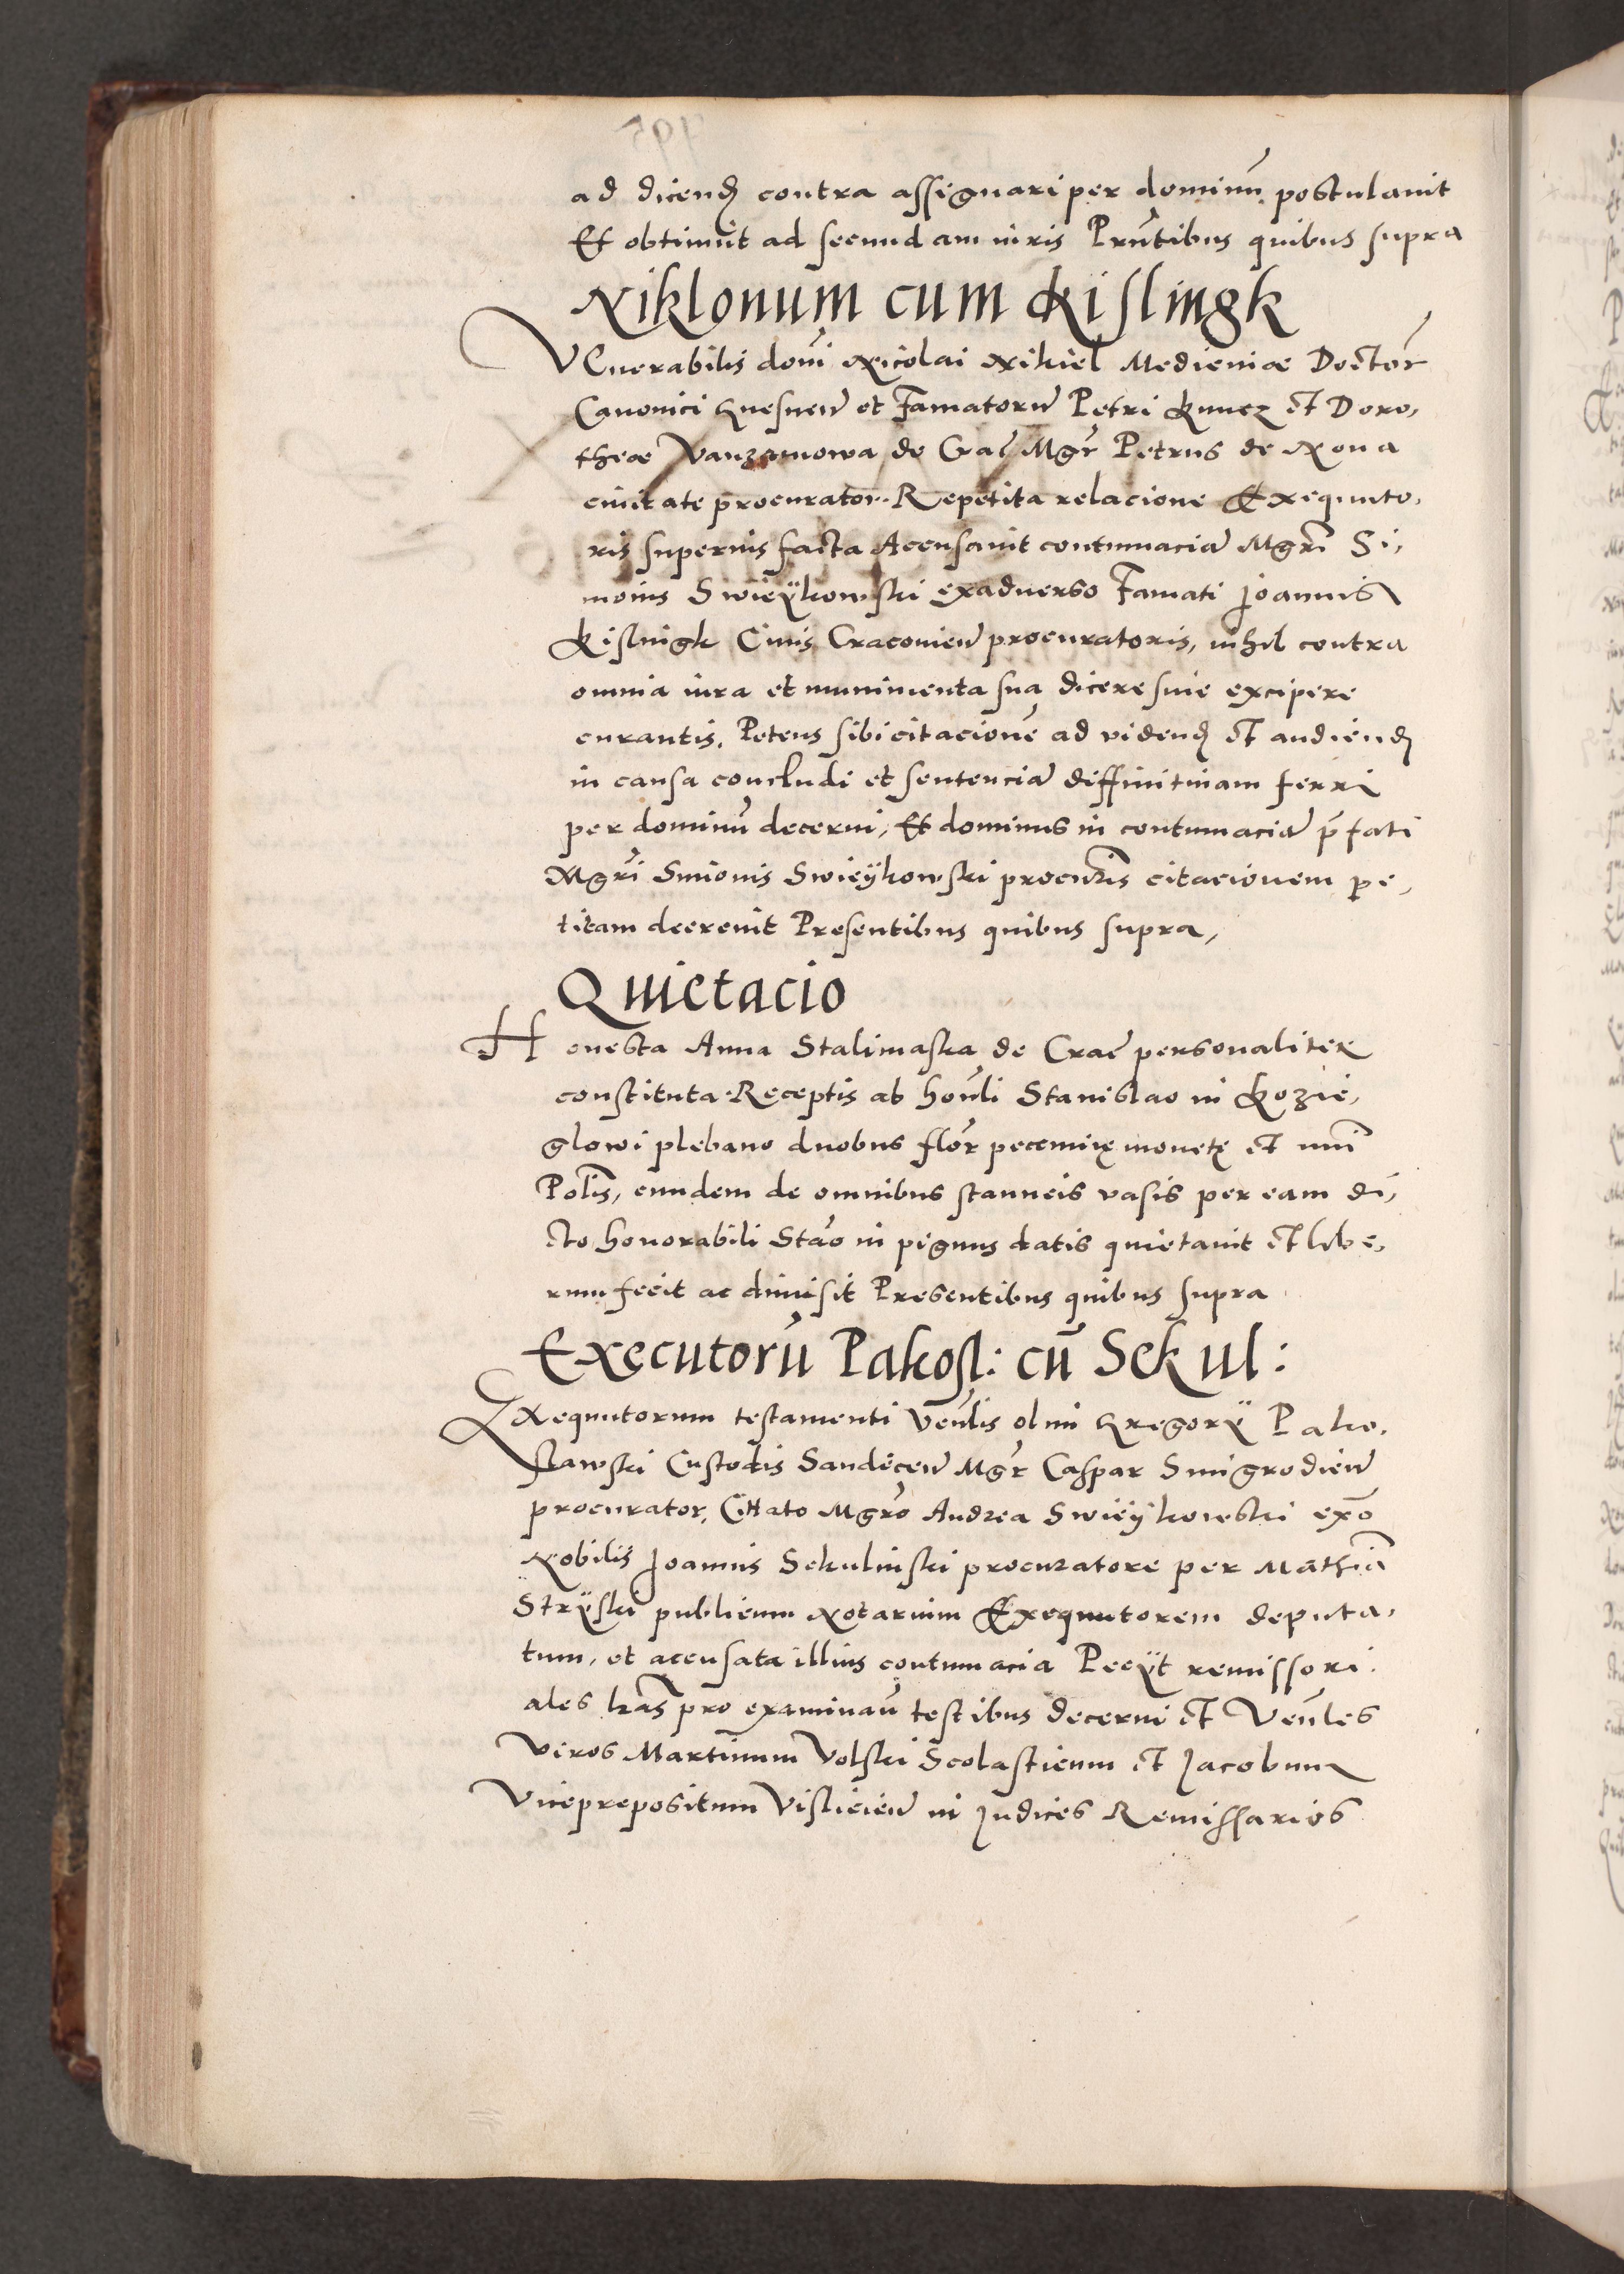 ad dicend contra assignari per dominū postulavit
Et obtinuit ad secundam iuris Prntibus quibus supra
Niklonum cum Kislingk
VEnerabilis domi Nicolai Nikiel Medicinæ Doctor
Canonici Gnesnen et Famatorū Petri Kuncz et Doro,
theæ de Crac Mgr Petrus de Nova
civitate procurator. Repetita relacione Exequuto,
ris superius facta Accusavit contumaciā Mgri Si,
monis Swieÿkowski exadverso Famati Joannis
Kislingk Civis Cracovien procuratoris, nihil contra
omnia iura et munimenta sua dicere sive excipere
curantis. Petens sibi citacionē ad vidend et audiend
in causa concludi et sentenciā diffinitivam ferri
per dominū decerni, Et dominus in contumaciā pfati
Mgri Simonis Swieÿkowski procuris citacionem pe,
titam decrevit Presentibus quibus supra,
Quietacio
Honesta Anna Stalimaska de Crac personaliter
constituta. Receptis ab honli Stanislao in Kozie,
glowi plebano duobus flor pecunię monetę et nūi
Polis, eundem de omnibus stanneis vasis per eam di,
cto honorabili Stao in pignus datis quietavit et libe,
rum fecit ac dimisit Presentibus quibus supra
Executorū Pakosl: cū Sekul:
Exequutorum testamenti Venlis olim Gregorÿ Pako,
slawski Custodis Sandecen Mgr Caspar Smigrodien
procurator, Cittato Mgro Andrea Swieÿkowski exo
Nobilis Joannis Sekulinski procuratore per Mathiā
Strÿski publicum Notarium Exequutorem deputa,
tum, et accusata illius contumacia Peciÿt remissori
ales lras pro examinan testibus decerni et Venles
Viros Martinum Volski Scolasticum et Jacobum
Vicepropositum Vislicien in Judices Remissarios